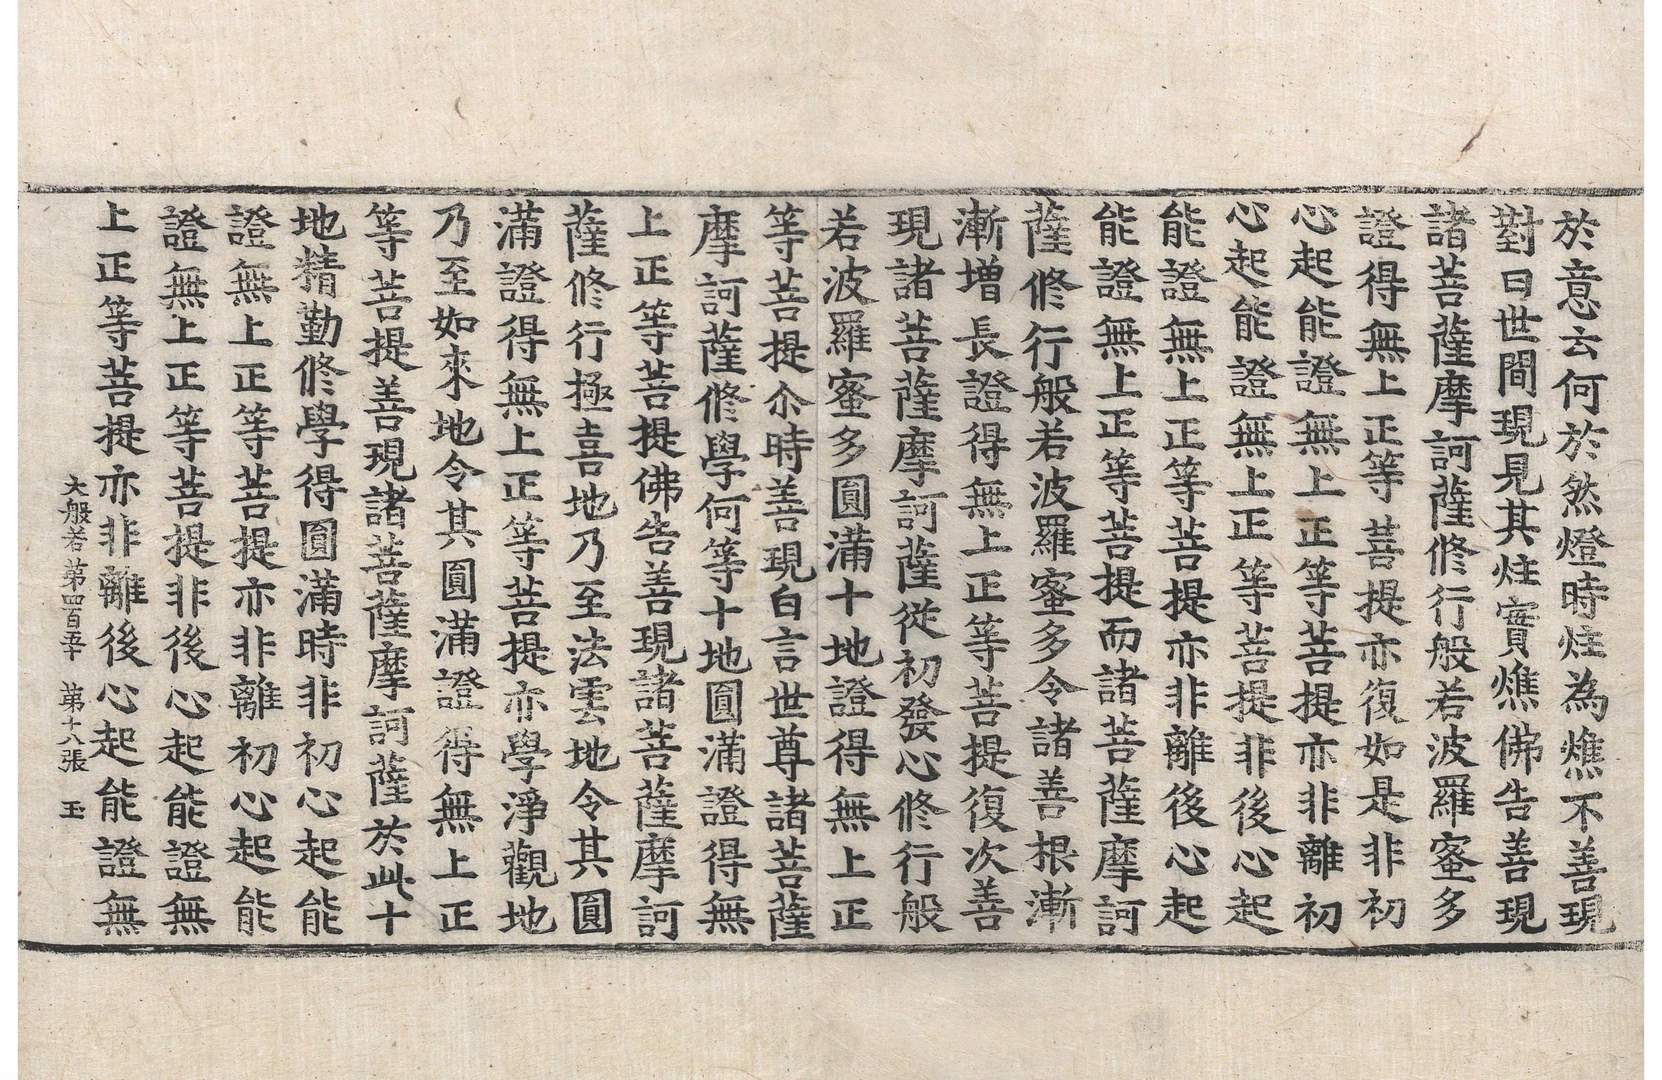 於意云何於然燈時炷為燋不善現
對曰世間現見其炷實燋佛告善現
諸菩薩摩訶薩修行般若波羅蜜多
證得無上正等菩提亦復如是非初
心起能證無上正等菩提亦非離初
心起能證無上正等菩提非後心起
能證無上正等菩提亦非離後心起
能證無上正等菩提而諸菩薩摩訶
薩修行般若波羅蜜多令諸善根漸
漸增長證得無上正等菩提復次善
現諸菩薩摩訶薩從初發心修行般
若波羅蜜多圓滿十地證得無上正
等菩提尒時善現白言世尊諸菩薩
摩訶薩修學何等十地圓滿證得無
上正等菩提佛告善現諸菩薩摩訶
薩修行極喜地乃至法雲地令其圓
滿證得無上正等菩提亦學淨觀地
乃至如來地令其圓滿證得無上正
等菩提善現諸菩薩摩訶薩於此十
地精勤修學得圓滿時非初心起能
證無上正等菩提亦非離初心起能
證無上正等菩提非後心起能證無
上正等菩提亦非離後心起能證無
大般若第四百五十 第十八張 玉